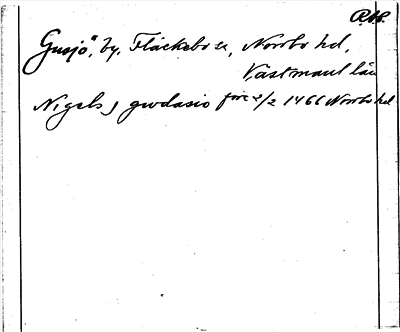 RA.
Gusjö, by, Fläckebo sn, Norrbo hd,
Västmanl län
Nigels j gwdasio före 2/2 1466 Norrbo hd